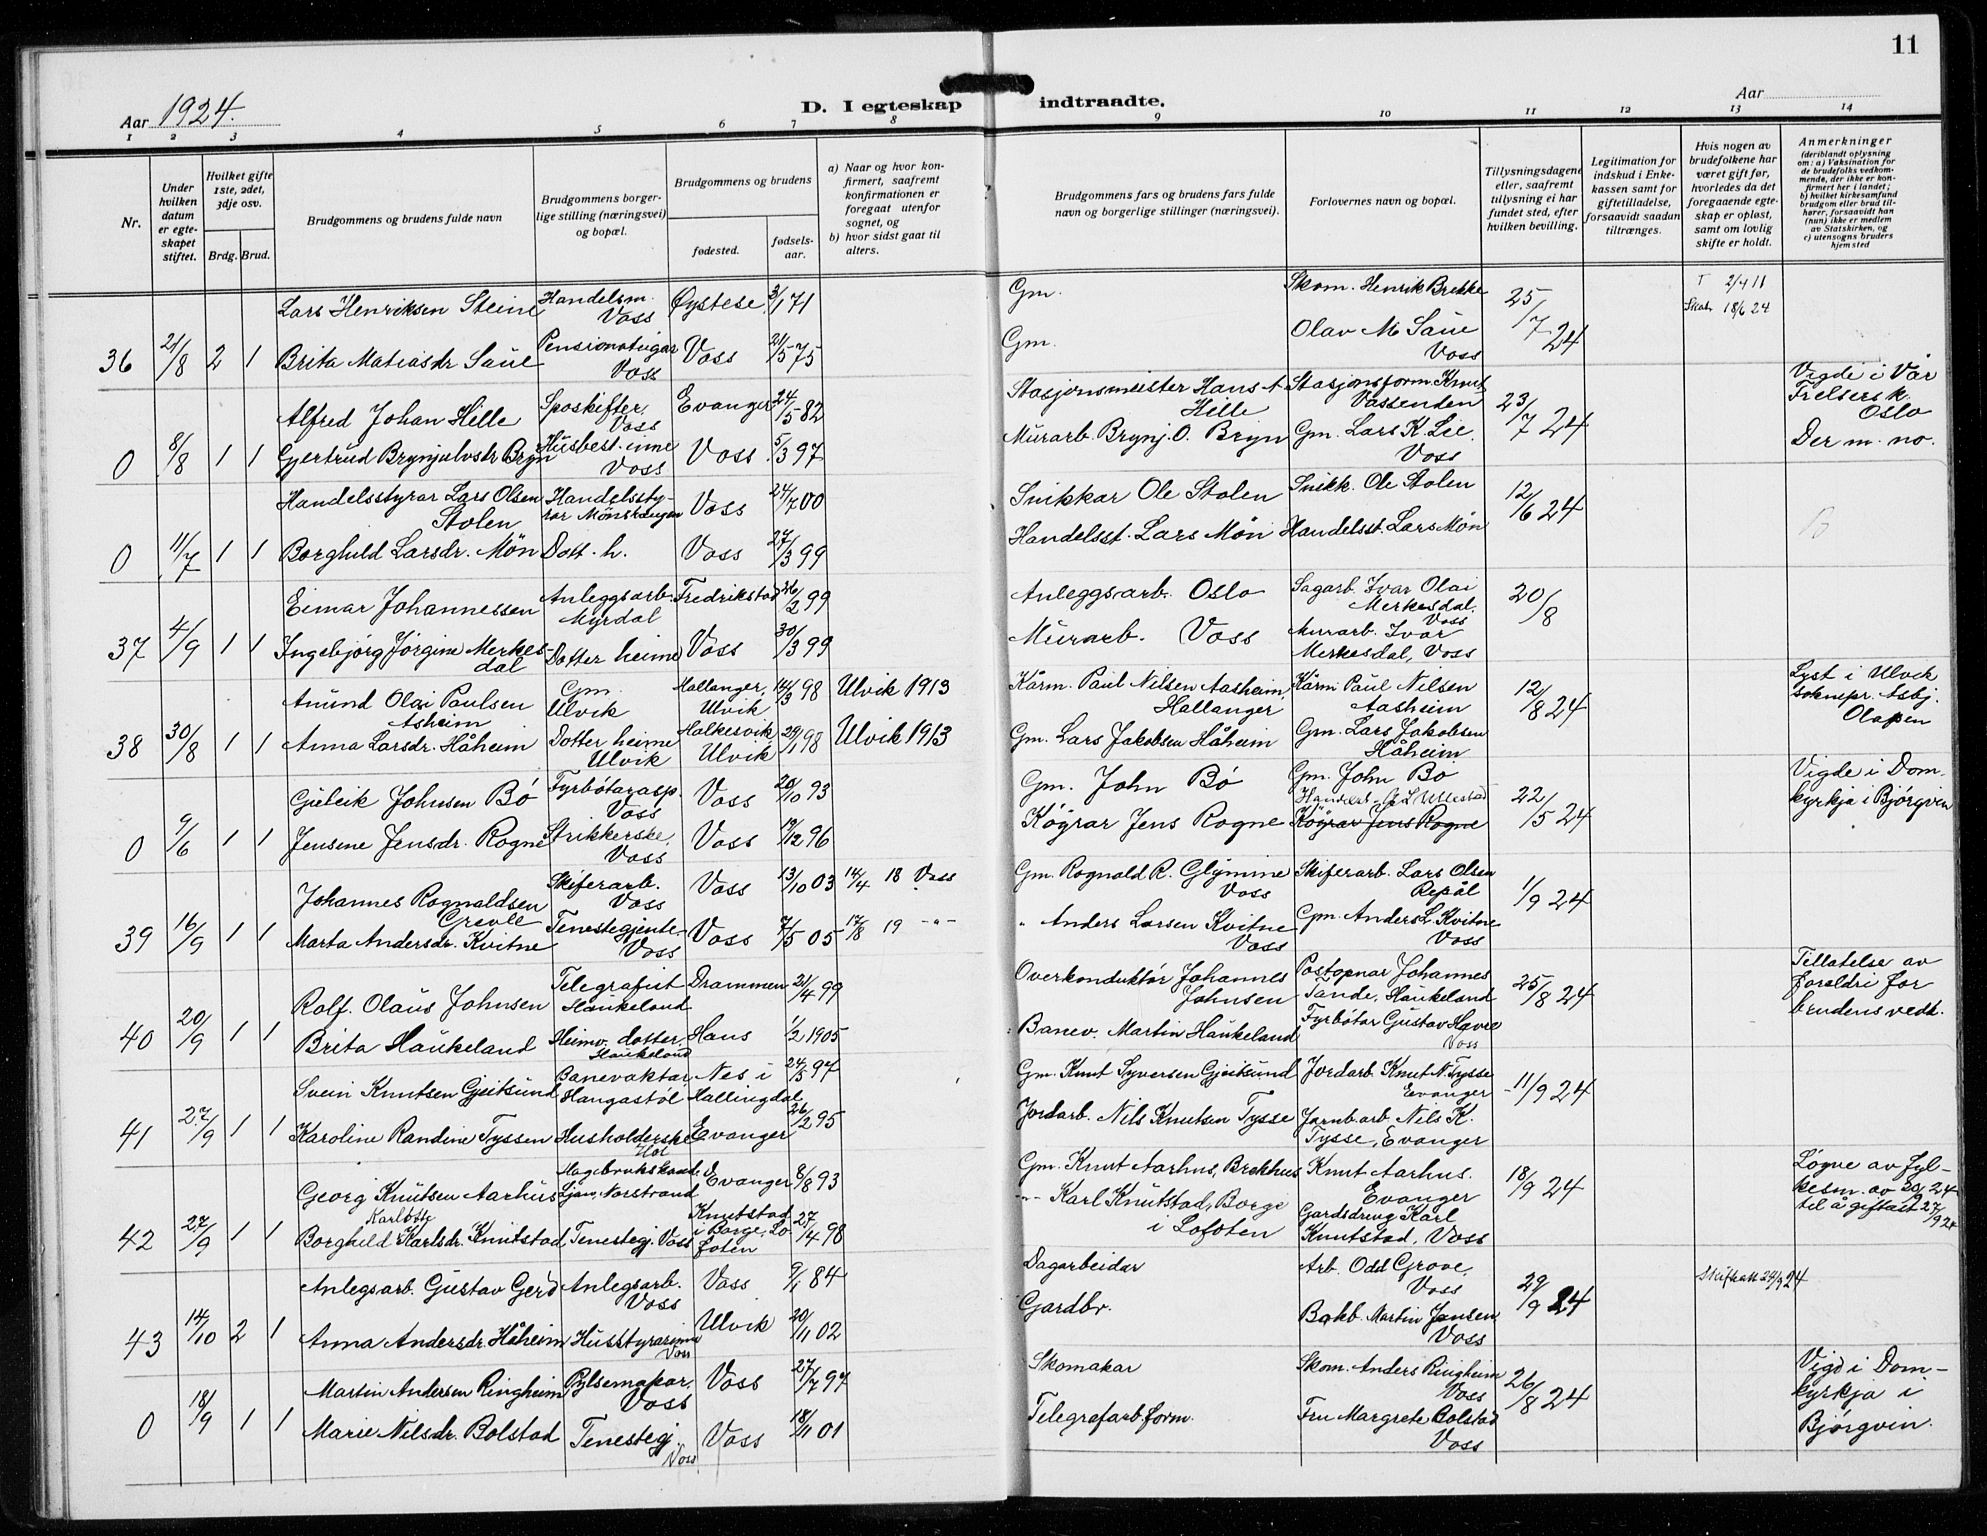 11
Aar 1924.
D. I egteskap indtraadte.
Aar
1 2 3 4 5 6 7 8 9 10 11 12 13 14
Nr.
Under hvilken datum er egteskapet stiftet.
Hvilket gifte 1ste, 2det, 3dje osv.
Brdg. Brud.
Brudgommens og brudens fulde navn
Brudgommens borgerlige stilling (næringsvei) og bopæl.
Brudgommens og brudens
fødested.
fødselsaar.
a) Naar og hvor konfirmert, saafremt konfirmationen er foregaat utenfor sognet, og
b) hvor sidst gaat til alters.
Brudgommens fars og brudens fars fulde navn og borgerlige stillinger (næringsvei).
Forlovernes navn og bopæl.
Tillysningsdagene eller, saafremt tillysning ei har fundet sted, efter hvilken bevilling.
Legitimation for indskud i Enkekassen samt for giftetilladelse, forsaavidt saadan tiltrænges.
Hvis nogen av brudefolkene har været gift før, hvorledes da det foregaaende egteskap er opløst, samt om lovlig skifte er holdt.
Anmerkninger
(deriblandt oplysning om: a) Vaksination for de brudefolks vedkommende, der ikke er konfirmert her i landet; b) hvilket kirkesamfund brudgom eller brud tilhører, forsaavidt han (hun) ikke er medlem av Statskirken, og c) utensogns bruders hjemsted
Lars Henriksen Steine Handelsm. Voss Øystese 3/1 71 Gm. Skom. Henrik Brekke 25/7 24 T 2/4 11
Skab 18/6 24
36 21/8 2 1 Brita Matiasdr Saue Pensionatugar Voss Voss 21/5 75 Gm. Olav M Saue Voss
Alfred Johan Hille Sposkifter. Voss Evanger 24/5 82 Stasjonsmeister Hans A Hille Stasjonsform. Knut Vassenden 23/7 24 Vigde i Vår Frelsers k. Oslo
0 8/8 1 1 Gjertrud Brynjulvsdr Bryn Husbest. inne Voss Voss 5/3 97 Murarb. Brynj. O. Bryn Gm. Lars K. Lie Voss Der m. no.
Handelsstyrar Lars Olsen Stolen Handelsstyrar Mønshaugen Voss 24/7 00 Snikkar Ole Stolen Snikk. Ole Stolen 12/6 24
0 11/7 1 1 Borghild Larsdr. Møn Dott. h. Voss 27/3 99 Handelsst. Lars Møn Handelsst. Lars Møn
Eimar Johannessen Anleggsarb. Myrdal Fredrikstad 26/2 99 Anleggsarb. Oslo Sagarb. Ivar Olai Merkesdal. Voss 20/8
37 4/9 1 1 Ingebjørg Jørgine Merkesdal Dotter heime Voss 30/3 99 Murarb. Voss Murarb. Ivar Merkesdal, Voss
Amund Olai Paulsen Asheim Gm. Ulvik Hallanger, Ulvik 14/3 98 Ulvik 1913 Kårm. Paul Nilsen Aasheim Hallanger Kårm Paul Nilsen Aasheim 12/8 24 Lyst i Ulvik soknepr. Asbj. Olafsen
38 30/8 1 1 Anna Larsdr. Håheim Dotter heime Ulvik Holkesvik Ulvik 29/1 98 Ulvik 1913 Gm. Lars Jakobsen Håheim Gm. Lars Jakobsen Håheim
Gjuleik Johnsen Bø Fyrbøtarasp. Voss Voss 20/10 93 Gm. John Bø Gm. John Bø 22/5 24 Vigde i Domkyrkja i Bjørgvin
0 9/6 1 1 Jensene Jensdr. Rogne Strikkerske, Voss Voss 19/12 96 Køyrar Jens Rogne Køyrar Jens Rogne
Johannes Rognaldsen Grevle Skiferarb. Voss Voss 13/10 03 14/4 18 Voss Gm. Rognald R. Glymine Voss Skiferarb. Lars Olsen Repål 1/9 24
39 16/9 1 1 Marta Andersdr. Kvitne Tenestegjente Voss Voss 7/5 05 17/8 19 -"- " Anders Larsen Kvitne Voss Gm. Anders L. Kvitne Voss
Rolf. Olaus Johnsen Telegrafist Haukeland Drammen 21/4 99 Overkonduktør Johannes Johnsen Postopnar Johannes Tande, Haukeland 25/8 24 Tillatelse av foreldri for brudens vedk.
40 20/9 1 1 Brita Haukeland Heimv. dotter, Haukeland Haus 1/2 1905 Banev. Martin Haukeland Fyrbøtar Gustav Havre Voss
Svein Knutsen Gjeitsund Banevaktar Haugastøl Nes i Hallingdal 24/5 97 Gm. Knut Syversen Gjeitsund Jordarb. Knut N. Tysse Evanger 11/9 24
41 27/9 1 1 Karoline Randine Tyssen Husholderske Hol Evanger 26/2 95 Jordarb. Nils Knutsen Tysse Jarnb.arb. Nils K. Tysse, Evanger
Georg Knutsen Aarhus Ljan, Norstrand Evanger 8/8 93 Gm. Knut Aarhus, Brekhus Knut Aarhus. Evanger 18/9 24 Løyve av fylkesm. av 20/9 24 til å giftast 27/9 24
42 27/9 1 1 Borghild Karlotte Karlsdr. Knutstad Tenestegj. Voss Knutstad i Borge, Lofoten 27/4 98 -"- Karl Knutstad, Borge i Lofoten Gardsdreng Karl Knutstad, Voss
Anlegsarb. Gustav Gerd Anlegsarb. Voss Voss 9/1 84 Dagarbeidar Arb. Odd Grove, Voss 29/9 24 Skifteatt 24/9 24
43 14/10 2 1 Anna Andersdr. Håheim Husstyrarinna Voss Ulvik 20/11 02 Gardbr. Bakb. Martin Jansen Voss
Martin Andersen Ringheim Pylsemakar. Voss Voss 27/7 97 Skomakar Skom. Anders Ringheim Voss 26/8 24 Vigd i Domkyrkja i Bjørgvin.
0 18/9 1 1 Marie Nilsdr. Bolstad Tenestegj Voss Voss 18/11 01 Telegrafarb.form. Fru Margrete Bolstad Voss